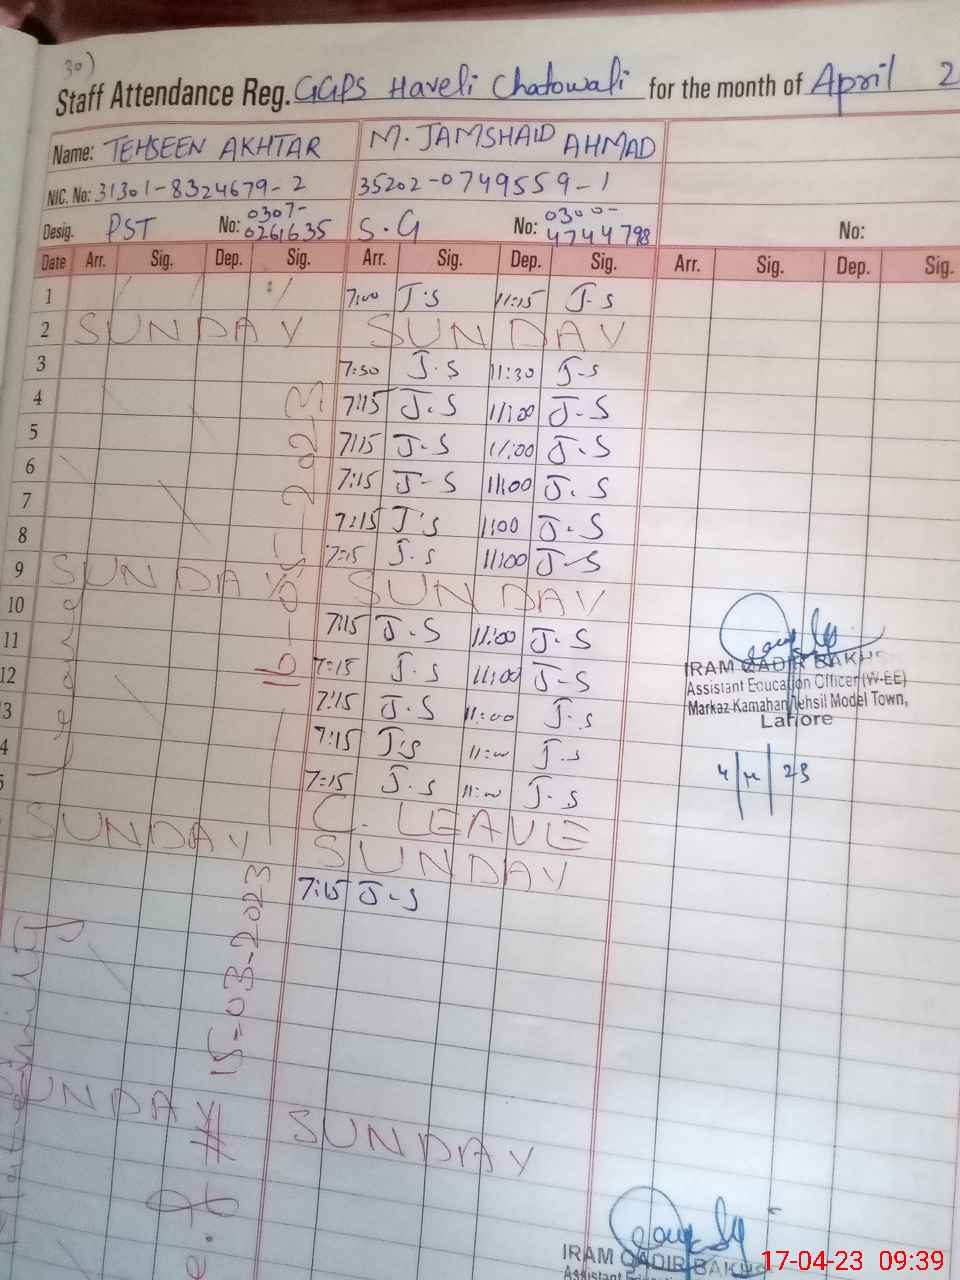 30)
Staff Attendance Reg. GGPS Haveli Chatowali for the month of April 2
Name: TEHSEEN AKHTAR M. JAMSHAID AHMAD
NIC. No: 31301-8324679-2 35202-0749559-1
Desig. PST No: 0307-0261635 S.G No: 0300-4744798 No:
Date Arr. Sig. Dep. Sig. Arr. Sig. Dep. Sig. Arr. Sig. Dep. Sig.
1 7:00 J.S 11:15 J-S
2 SUNDAY SUNDAY
3 7:30 J.S 11:30 J-S
4 7:15 J.S 11:00 J-S
5 7:15 J-S 11:00 J-S
6 7:15 J-S 11:00 J.S
7 7:15 J's 11:00 J-S
8 7:15 J.S 11:00 J-S
9 SUNDAY SUNDAY
10 7:15 J.S 11:00 J-S
11 7:15 J.S 11:00 J-S
12 7:15 J.S 11:00 J.S
13 7:15 J's 11:00 J-S
14 7:15 J.S 11:00 J-S
15 C. LEAVE
SUNDAY SUNDAY
7:15 J-S
SUNDAY SUNDAY
16-03-2023
15-03-2023
IRAM QADIR BAKHSH
Assistant Education Officer (W-EE)
Markaz Kamahan Tehsil Model Town,
Lahore
4/4/23
IRAM QADIR BAKHSH
Assistant
17-04-23 09:39